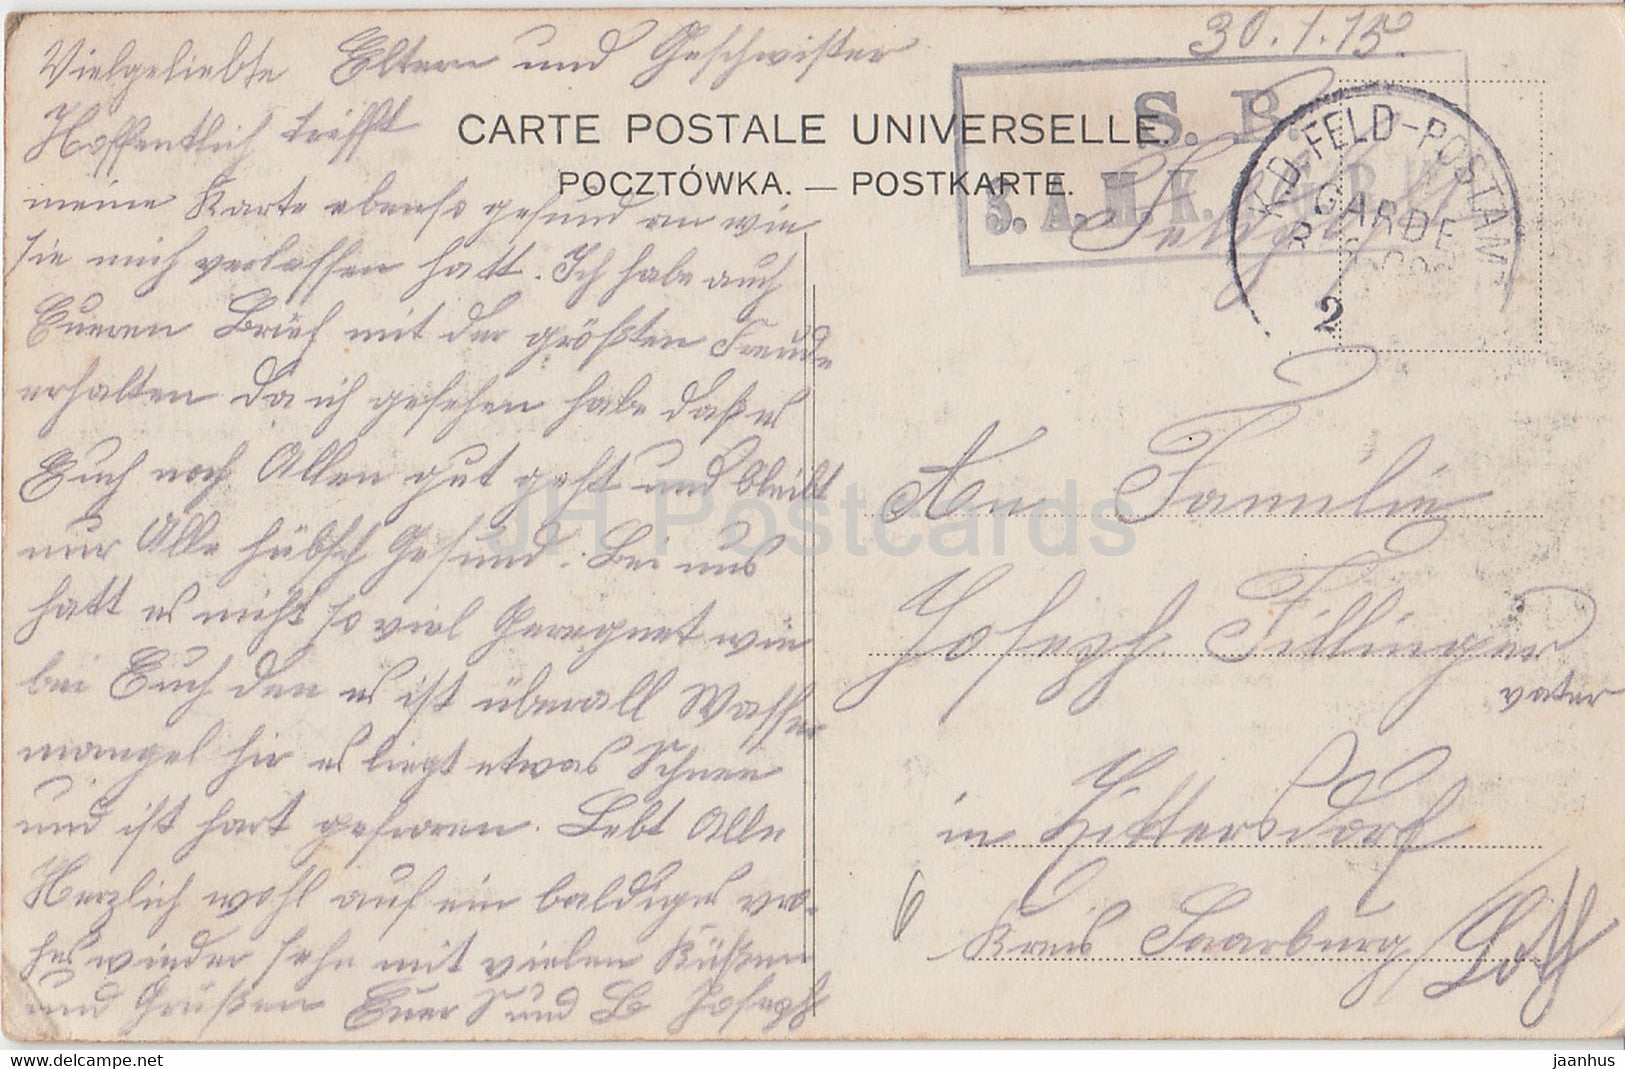 30.1.15.
Vielgeliebte Eltern und Geschwister
Hoffentlich trifft
meine Karte ebenso gesund an wie
sie mich verlassen hatt. Ich habe auch
Eueren Brief mit der größten Freude
erhalten da ich gesehen habe daß es
Euch noch Allen gut geht und bleibt
nur Alle hübsch Gesund. Bei uns
hatt es nicht so viel Geregnet wie
bei Euch den es ist überall Wasser
mangel hir es liegt etwas Schnee
und ist hart gefroren. Lebt Alle
Herzlich wohl auf ein baldiges fro-
hes wieder sehn mit vielen Küßen
und Grüßen Euer S und B Joseph
CARTE POSTALE UNIVERSELLE.
POCZTÓWKA. — POSTKARTE.
S. B.
3. A. M. K.
KD. FELD-POSTAMT
GARDE
2
Feldpost
An Familie
Joseph Fillinger
vater
in Hittersdorf
Kreis Saarburg / Loth
6
JH Postcards
www.delcampe.net
jaanhus